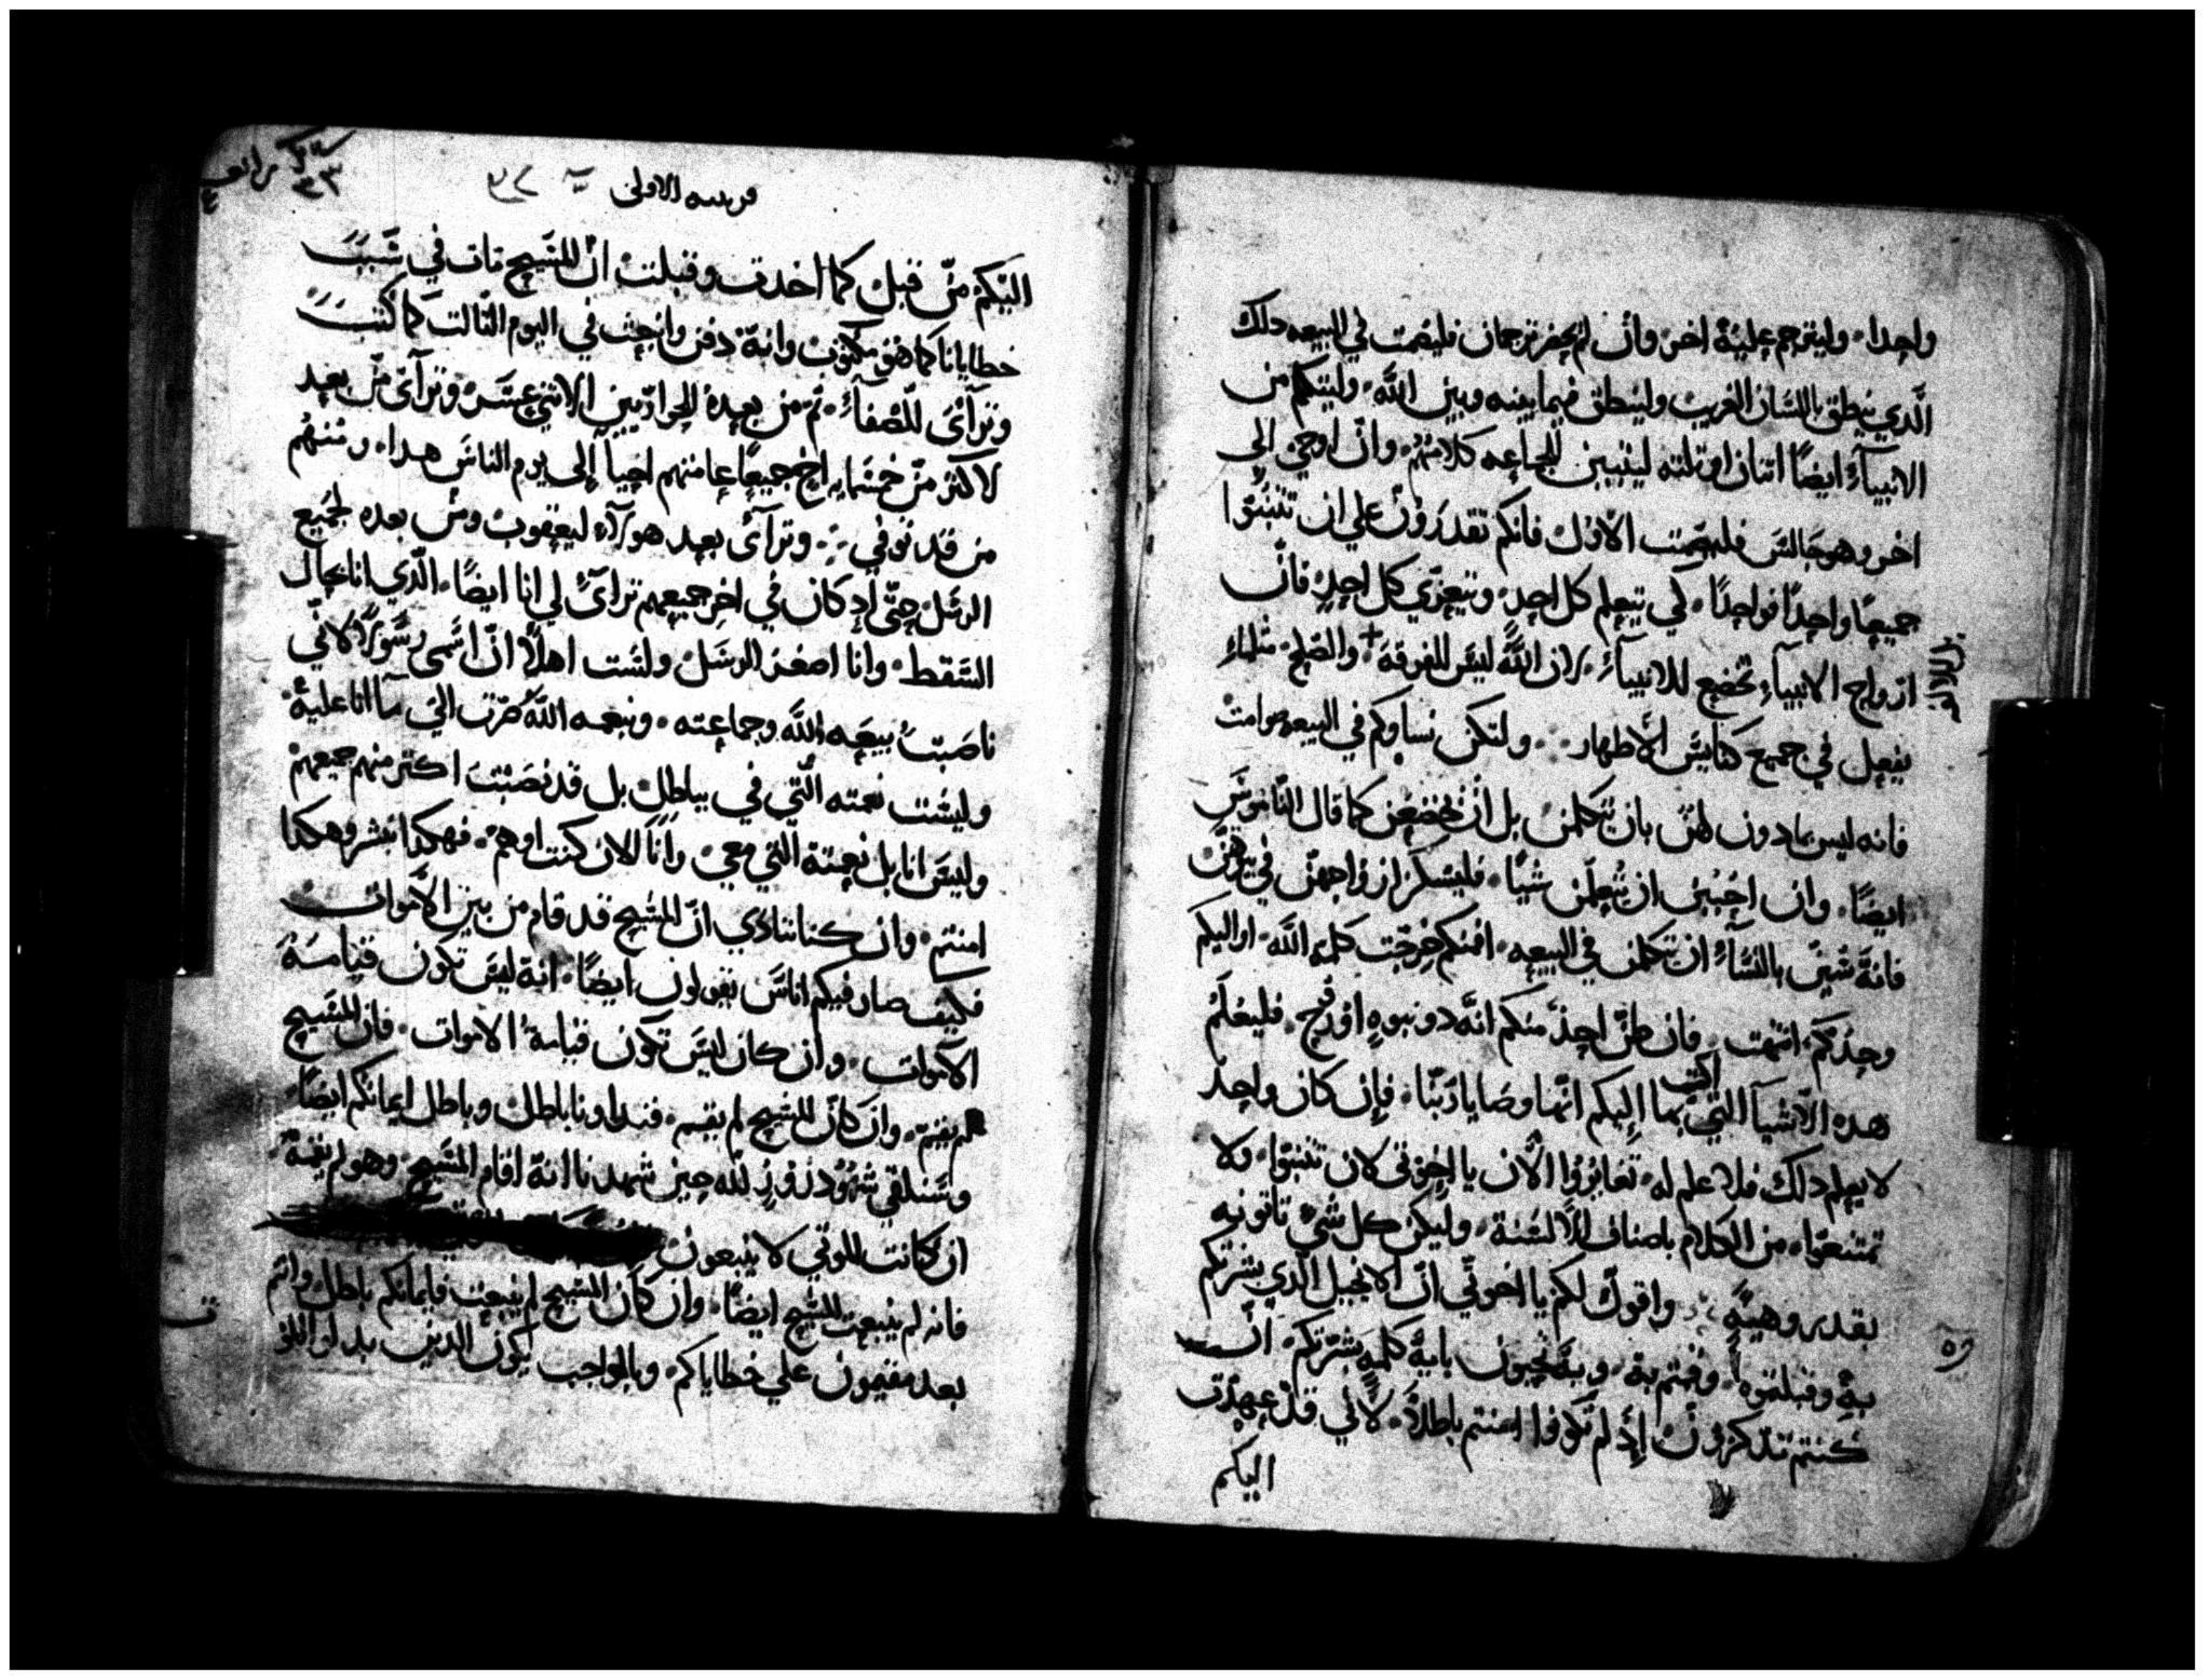 واحدا ٠ وليترجم عليه اخر وان لم يحضر ترجمان فليصمت في البيعه دلك
الدي ينطق باللسان الغريب ولينطق فيما بينه وبين الله ٠ وليتكلم من
الانبيآء ايضًا اتنان او تلته ليتبين للجماعه كلامهم ٠ وان اوحي الي
اخر وهو جالس فليصمت الاول فانكم تقدرون علي ان تتنبوا
جميعًا واحدًا فواحدًا ٠ لكي يتعلم كل احد ٠ ويتعزي كل احد فان
ارواح الانبيآء تخضع للانبيآء ٠ لان الله ليس للفرقة + والصلح ٠ مثلما
يفعل في جميع كنايس الاطهار ٠ ٠ ولتكن نساوكم في البيعه صوامت
فانه ليس بمادون لهن بان يتكلمن بل ان يخضعن كما قال الناموس
ايضًا ٠ وان احببن ان يتعلمن شيًا ٠ فليسلن ازواجهن في بيوتهن
فانة شين بالنسآء ان يتكلمن في البيعه ٠ افمنكم خرجت كلمه الله ٠ او اليكم
وحدكم انتهت ٠ فان ظن احد منكم انه دو نبوه او روح ٠ فليعلم
هده الاشيآ التي اكتب بها اليكم انها وصايا ربنا ٠ فان كان واحد
لا يعلم دلك فلا علم له ٠ تغايروا الان يا اخوتي لان تتنبوا ٠ ولا
تمتنعوا من الكلام باصناف الالسنة ٠ وليكن كل شي تاتونه
بقدر وهيئه ٠ واقول لكم يا اخوتي ان الانجيل الدي بشرتكم
به وقبلتموه ٠ وقمتم به ٠ وبه تحيون باية كلمه بشرتكم ان
كنتم تدكرون اد لم تكونوا امنتم باطلاً ٠ لاني قد عهدت
اليكم
قرنتيه الاولي
اليكم من قبل كما اخدت وقبلت ان المسيح مات في سبب
خطايانا كما هو مكتوب وانه دفن وانبعث في اليوم التالت كما كتب
وترآى للصفآء ٠ تم من بعده للحواريين الاتني عشر ٠ وترآى من بعد
لاكتر من خمسمايه اخ جميعًا عامتهم احيآ إلى يوم الناس هدا ٠ ومنهم
من قد توفي ٠ وترآى بعد هولآء ليعقوب ومن بعده لجميع
الرسل حتى اد كان في اخر جميعهم ترآى لي انا ايضًا ٠ الدي انا بحال
السقط ٠ وانا اصغر الرسل ولست اهلاً ان اسمى رسولاً لاني
ناصبت بيعه الله وجماعته ٠ وبنعمه الله صرت الي ما انا عليه ٠
وليست نعمته التي في بباطل بل قد نصبت اكتر منهم جميعهم
وليس انا بل نعمته التي معي ٠ وانا الان كنت او هم ٠ فهكدا نبشر وهكدا
امنتم ٠ وان كنا ننادي ان المسيح قد قام من بين الاموات
فكيف صار فيكم اناس يقولون ايضًا ٠ انه ليس تكون قيامة
الاموات ٠ وان كان ليس تكون قيامة الاموات ٠ فان المسيح
لم يقم ٠ وان كان المسيح لم يقم ٠ فنداونا باطل وباطل ايمانكم ايضًا ٠
وسنلقي شهود زور لله حين شهدنا انه اقام المسيح ٠ وهو لم يقمه
ان كانت الموتي لا ينبعون
فانه لم ينبعت المسيح ايضًا ٠ وان كان المسيح لم ينبعت فايمانكم باطل وانتم
بعد مقيمون علي خطاياكم ٠ وبالواجب يكون الدين